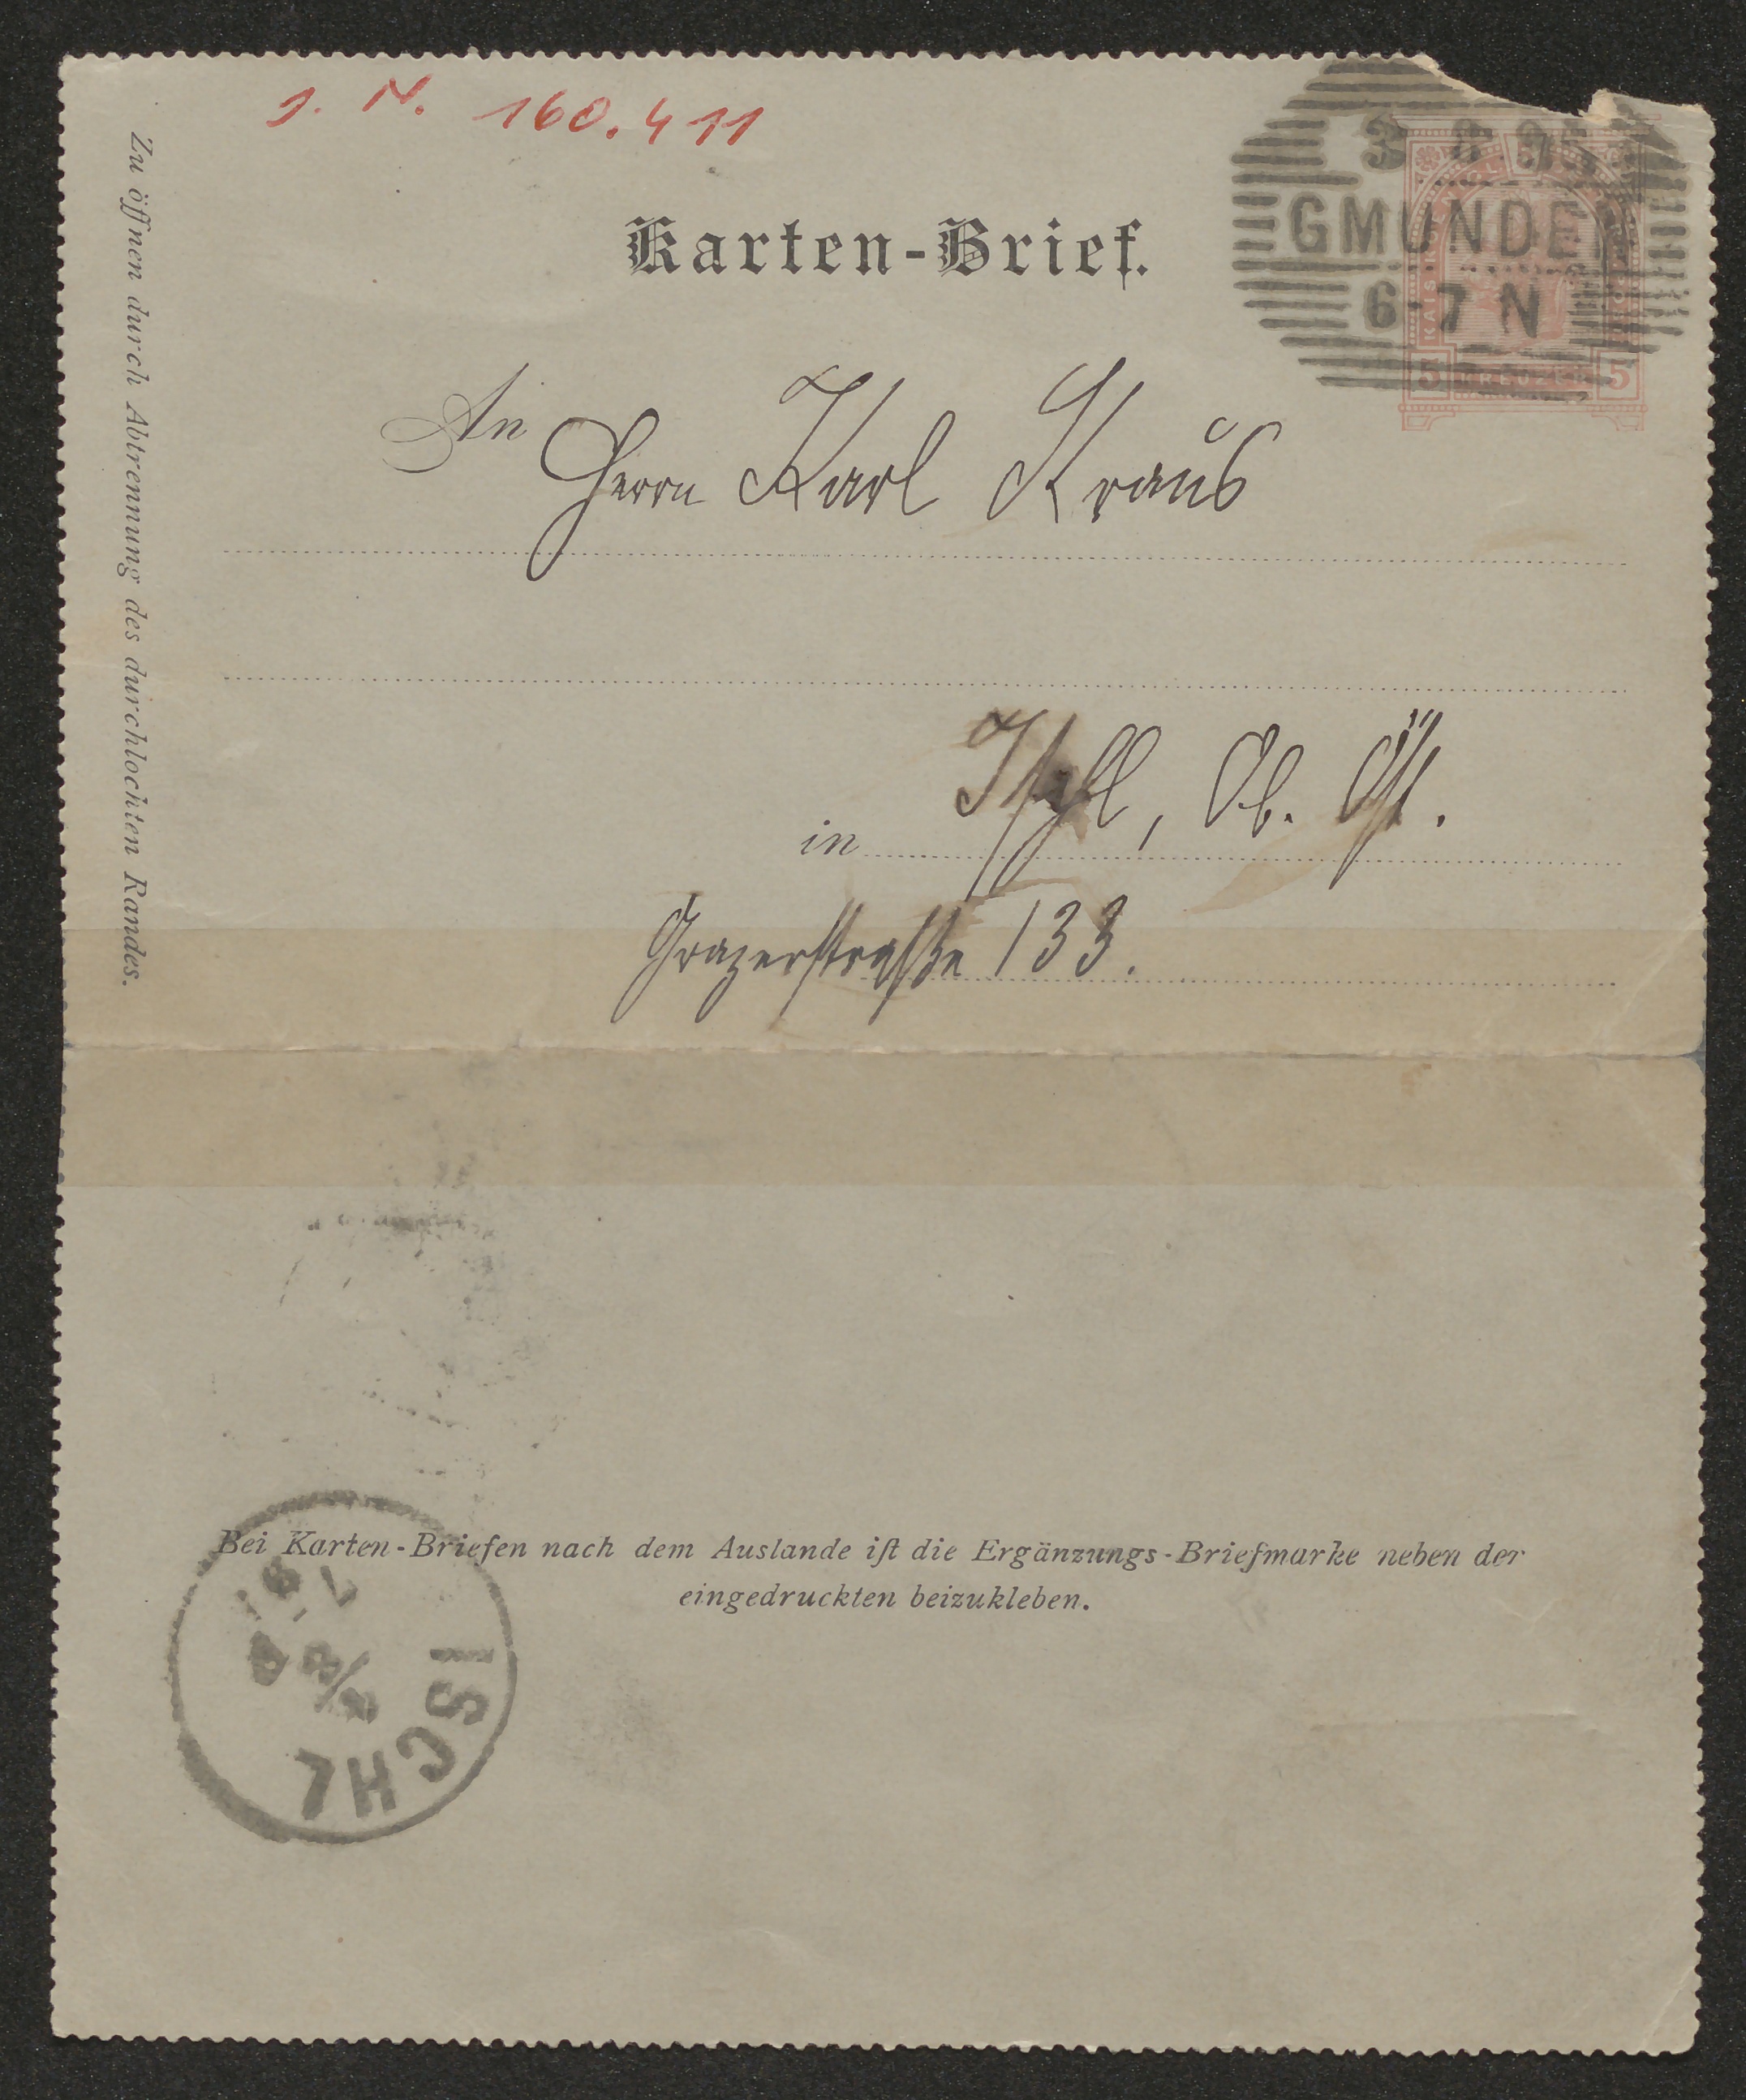 J. N. 160.411
Karten-Brief.
GMUNDEN
6-7 N
5 KREUZER 5
An Herrn Karl Kraus
in Ischl, Ob. Öst.
Grazerstraße 133.
Zu öffnen durch Abtrennung des durchlochten Randes.
Bei Karten-Briefen nach dem Auslande iſt die Ergänzungs-Briefmarke neben der
eingedruckten beizukleben.
ISCHL